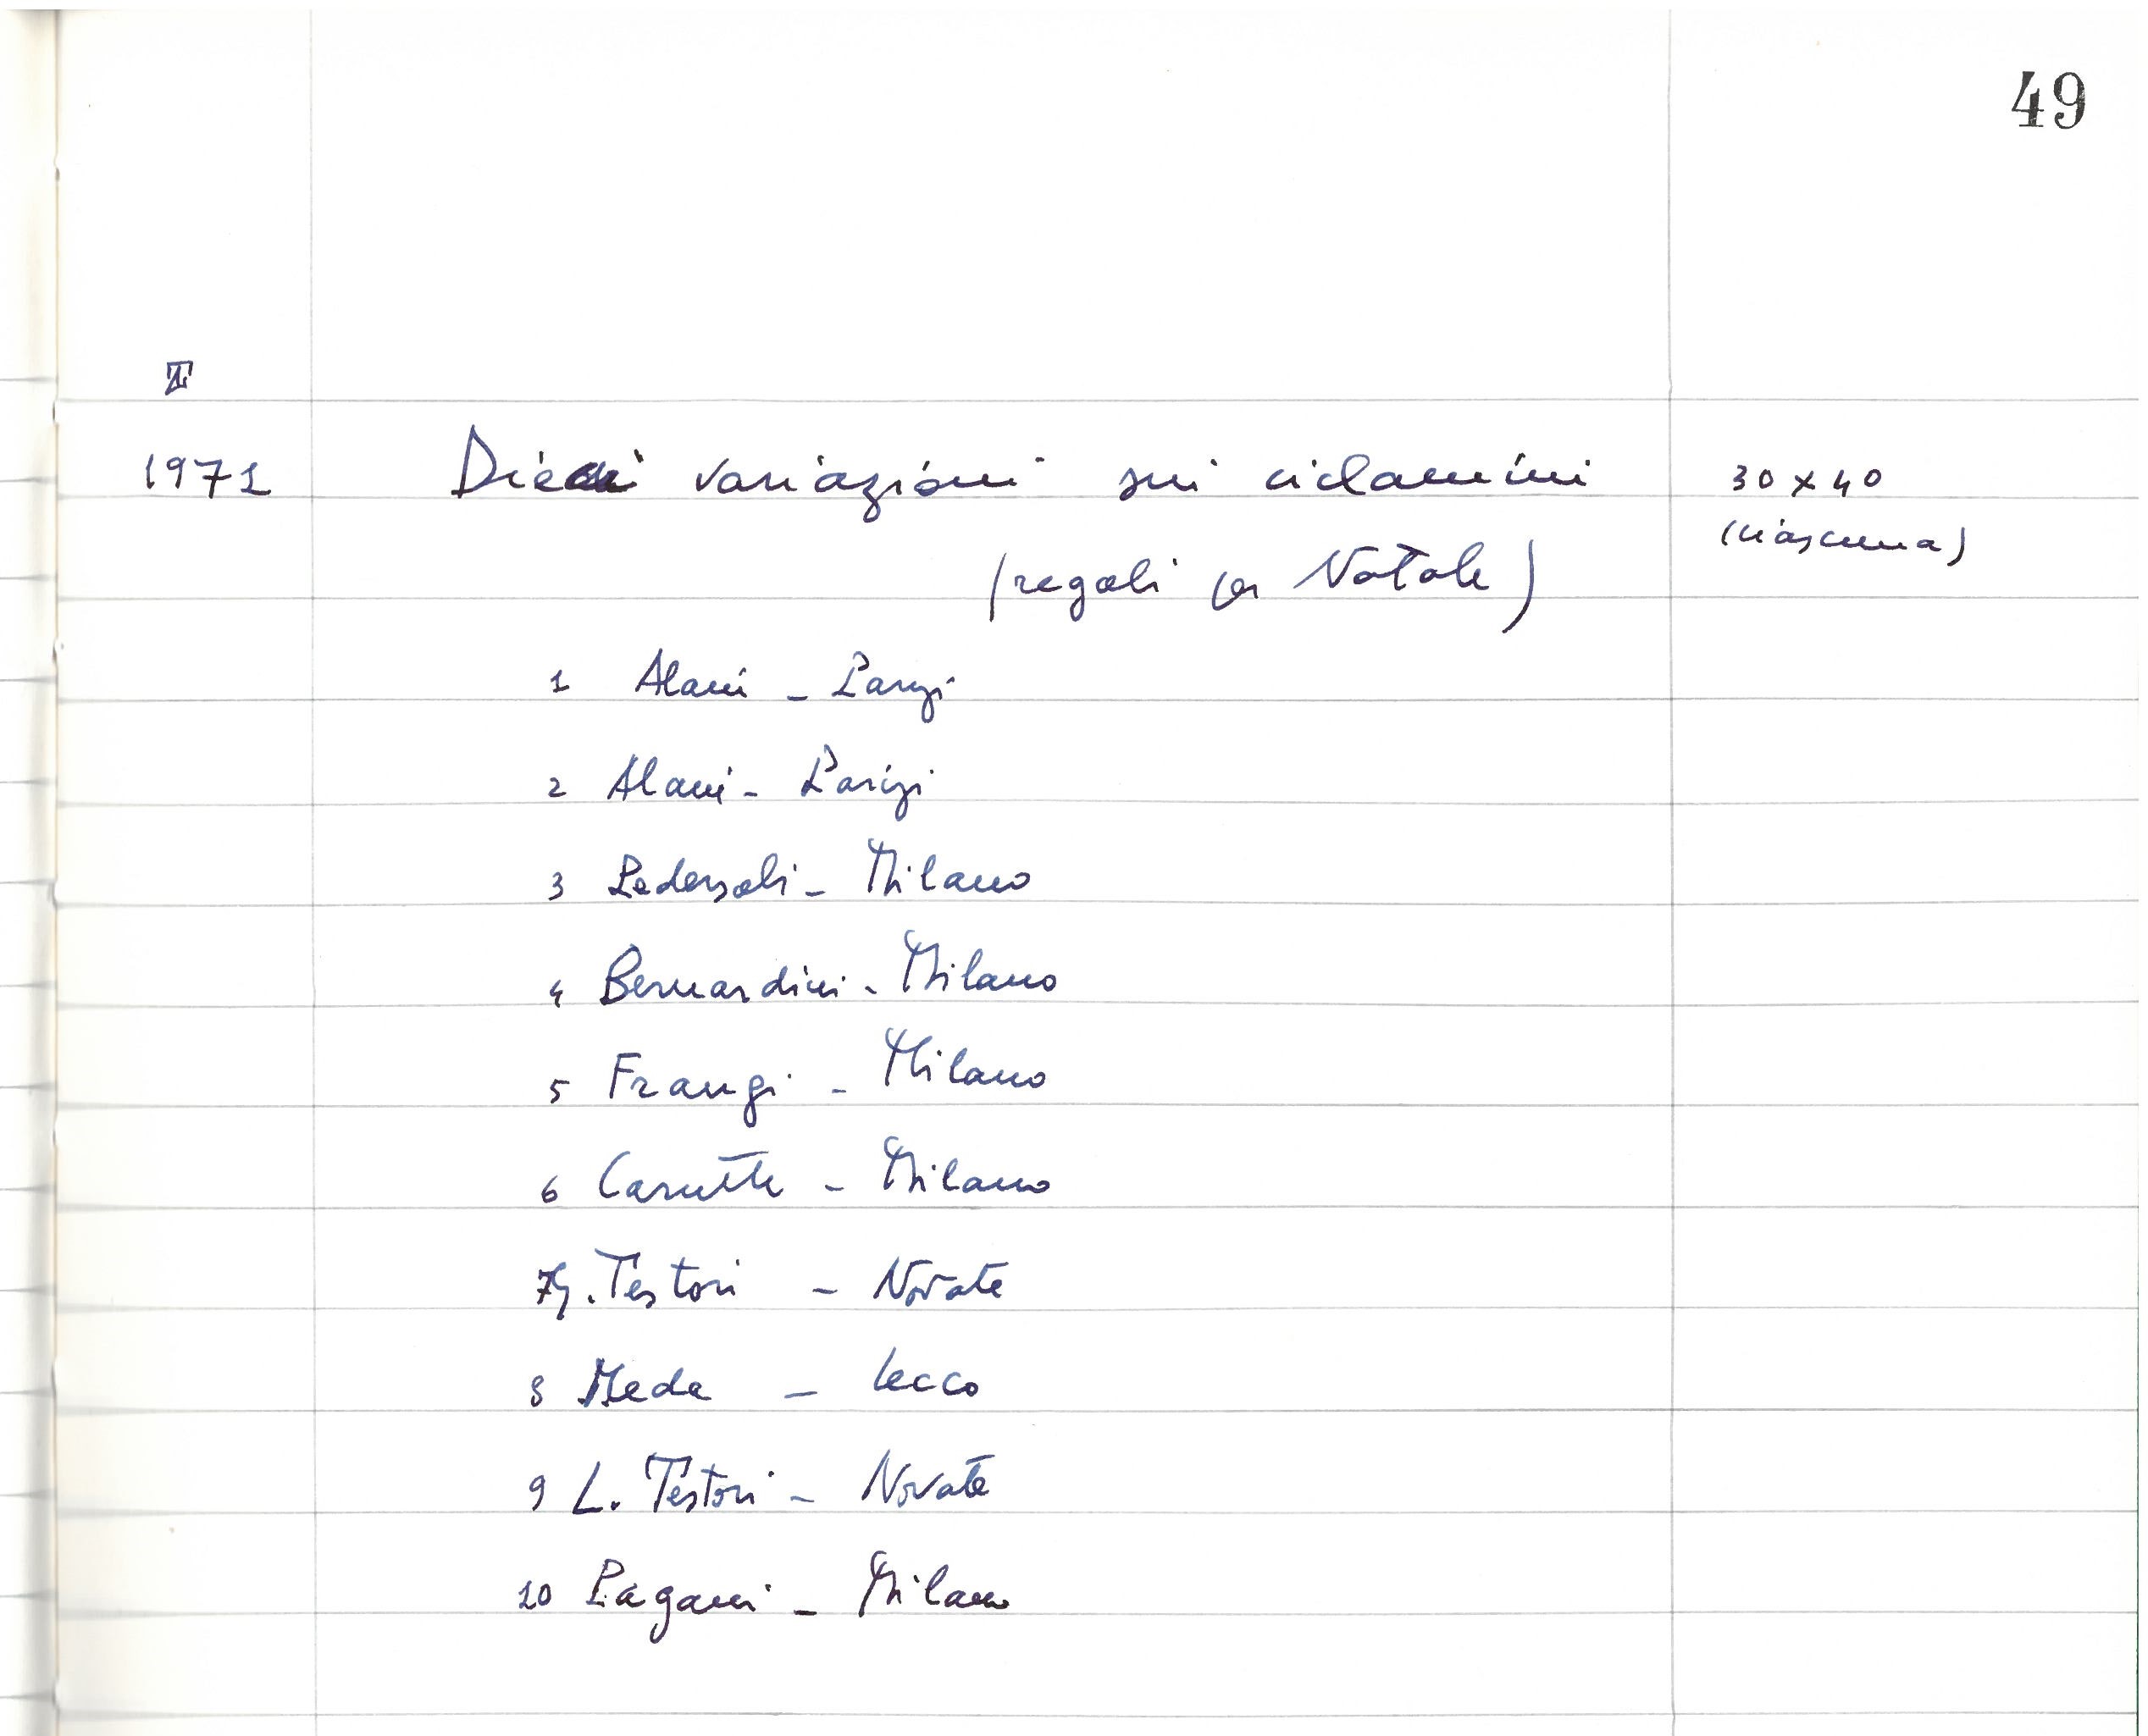 49
T
1971 Dieci variazioni sui ciclamini 30 x 40
(ciascuna)
(regali per Natale)
1 Alani - Parigi
2 Alani - Parigi
3 Pedersoli - Milano
4 Bernardini - Milano
5 Frangi - Milano
6 - Milano
7 G. Testori - Novate
8 Meda - Lecco
9 L. Testori - Novate
10 Pagani - Milano